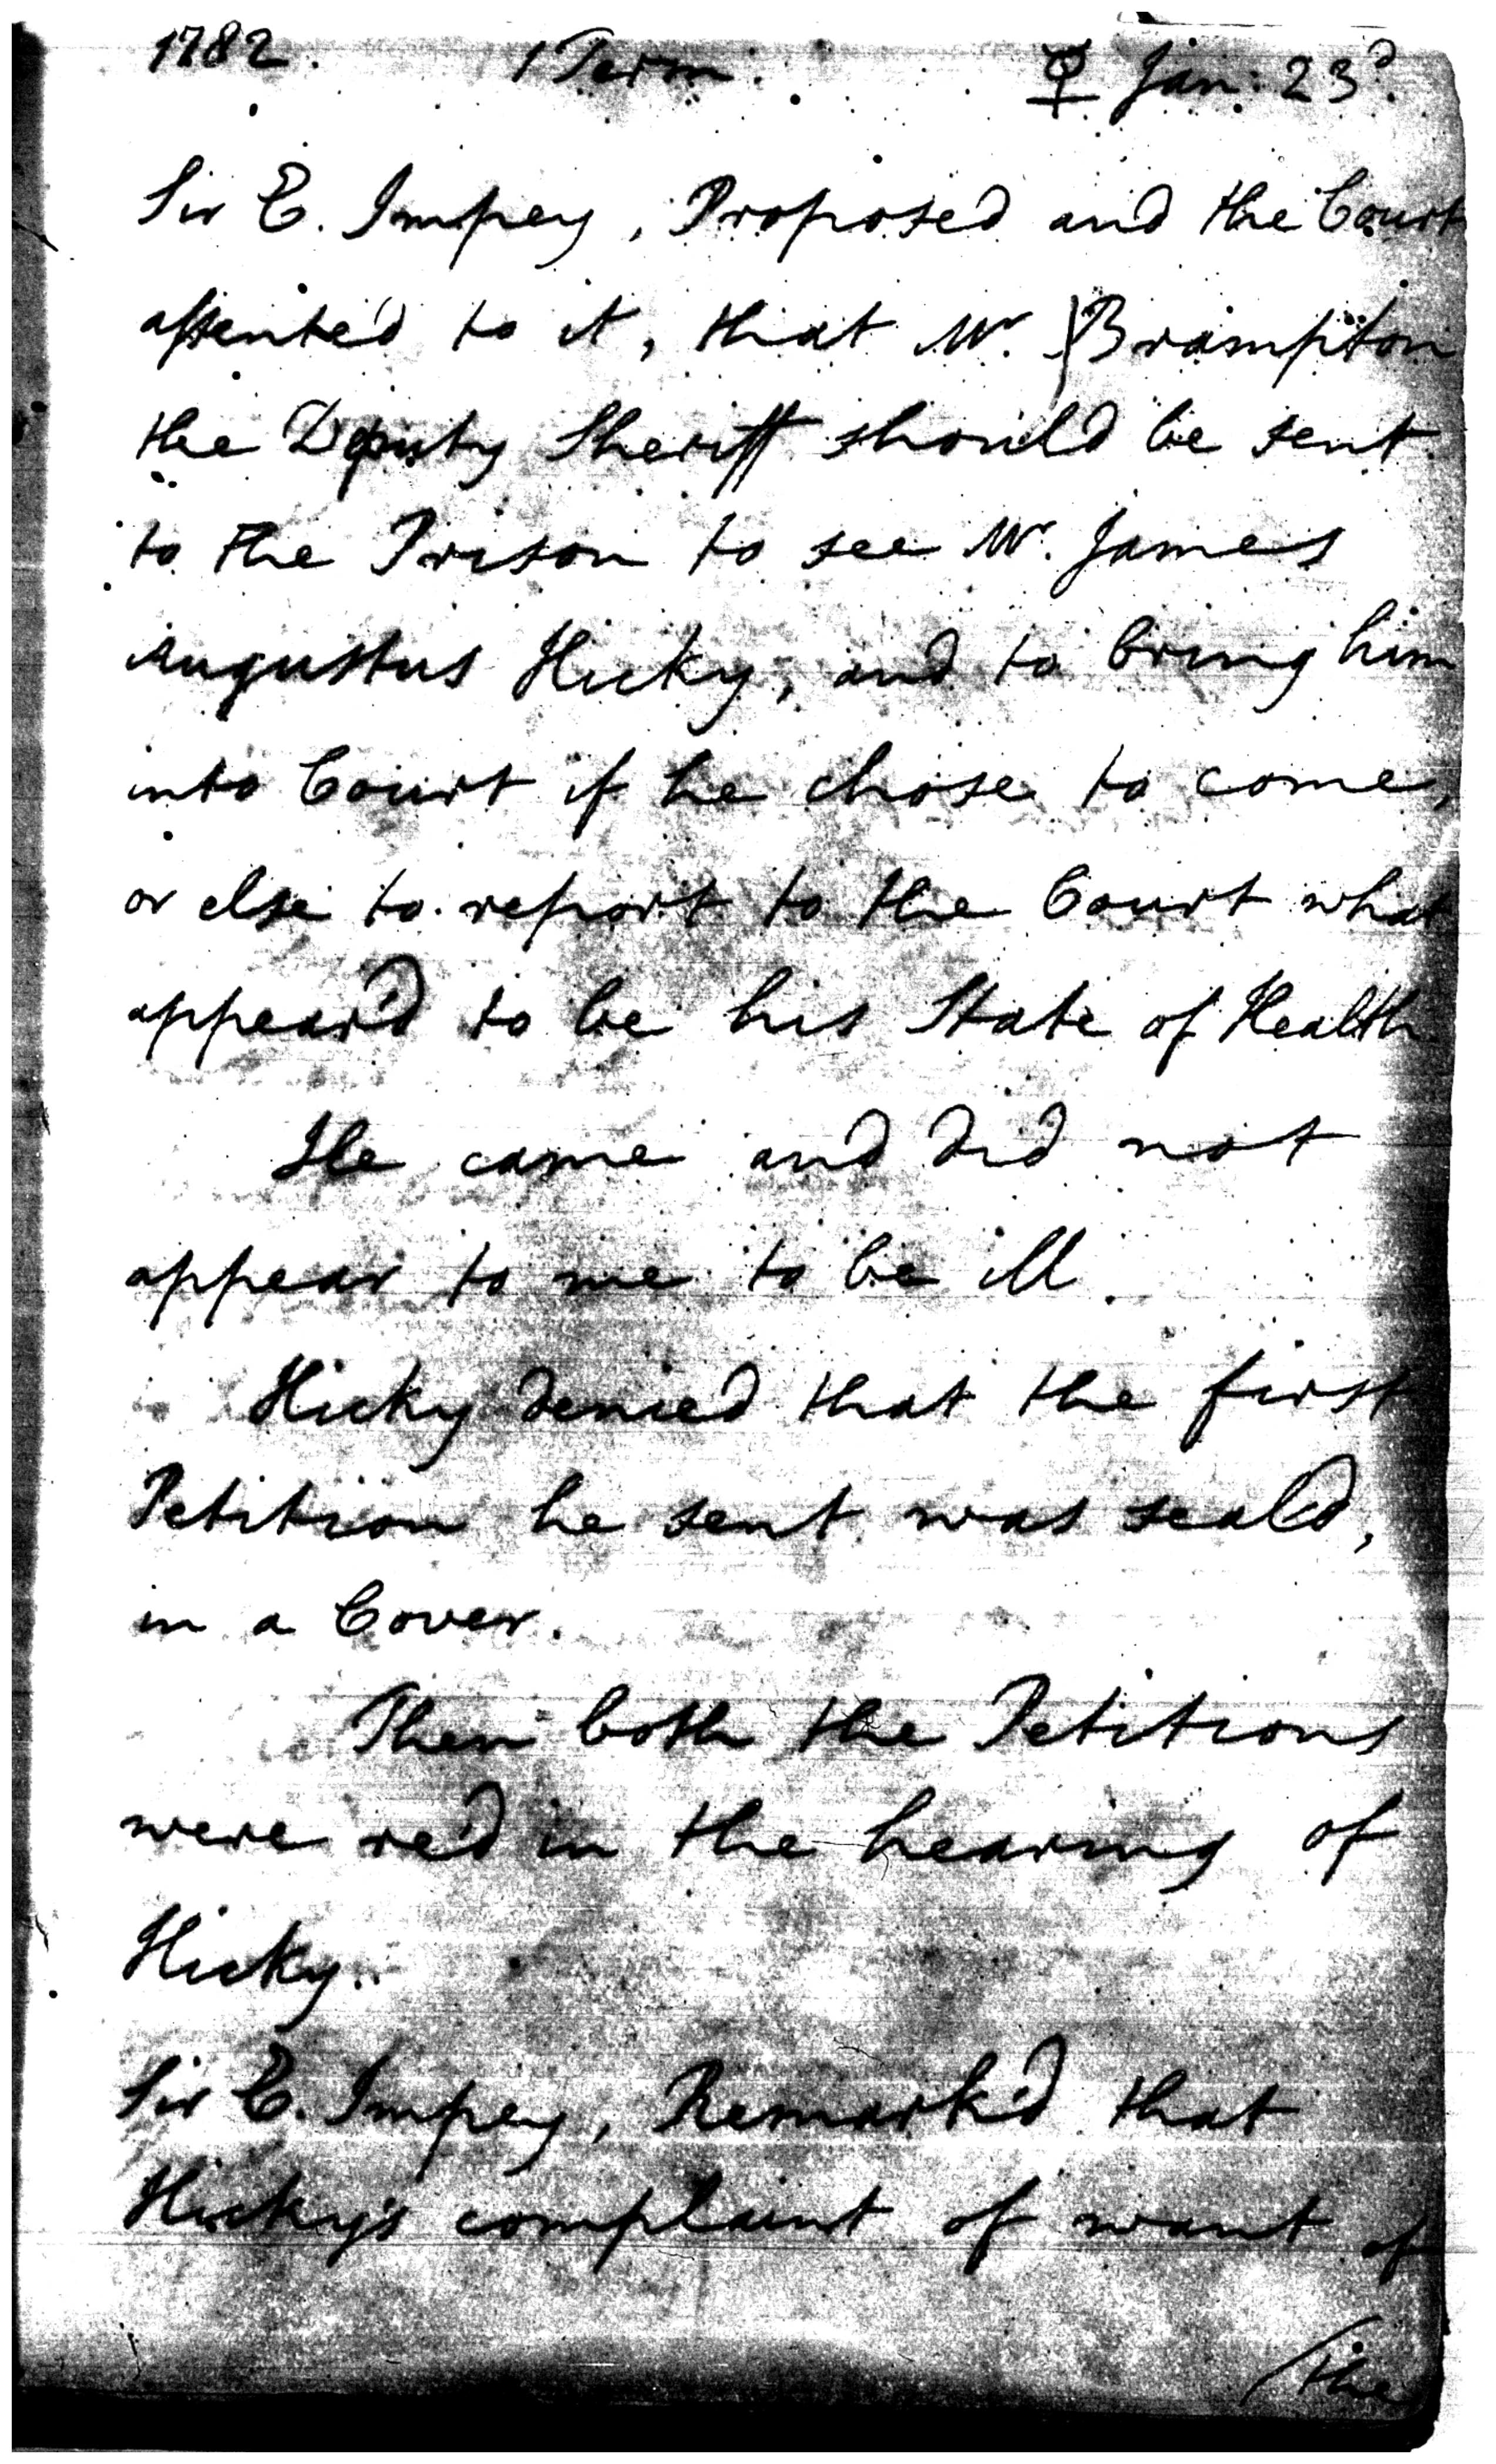 1782. 1 Term. ♀ Jan: 23d.
Sir E. Impey, Proposed and the Court
assented to it, that Mr. Brampton
the Deputy Sheriff should be sent
to the Prison to see Mr. James
Augustus Hicky, and to bring him
into Court if he chose to come,
or else to report to the Court what
appear'd to be his State of Health
He came and did not
appear to me to be ill.
Hicky denied that the first
Petition he sent was seald,
in a Cover.
Then both the Petitions
were re'd in the hearing of
Hicky.
Sir E. Impey, Remark'd that
Hicky's complaint of want of
/the